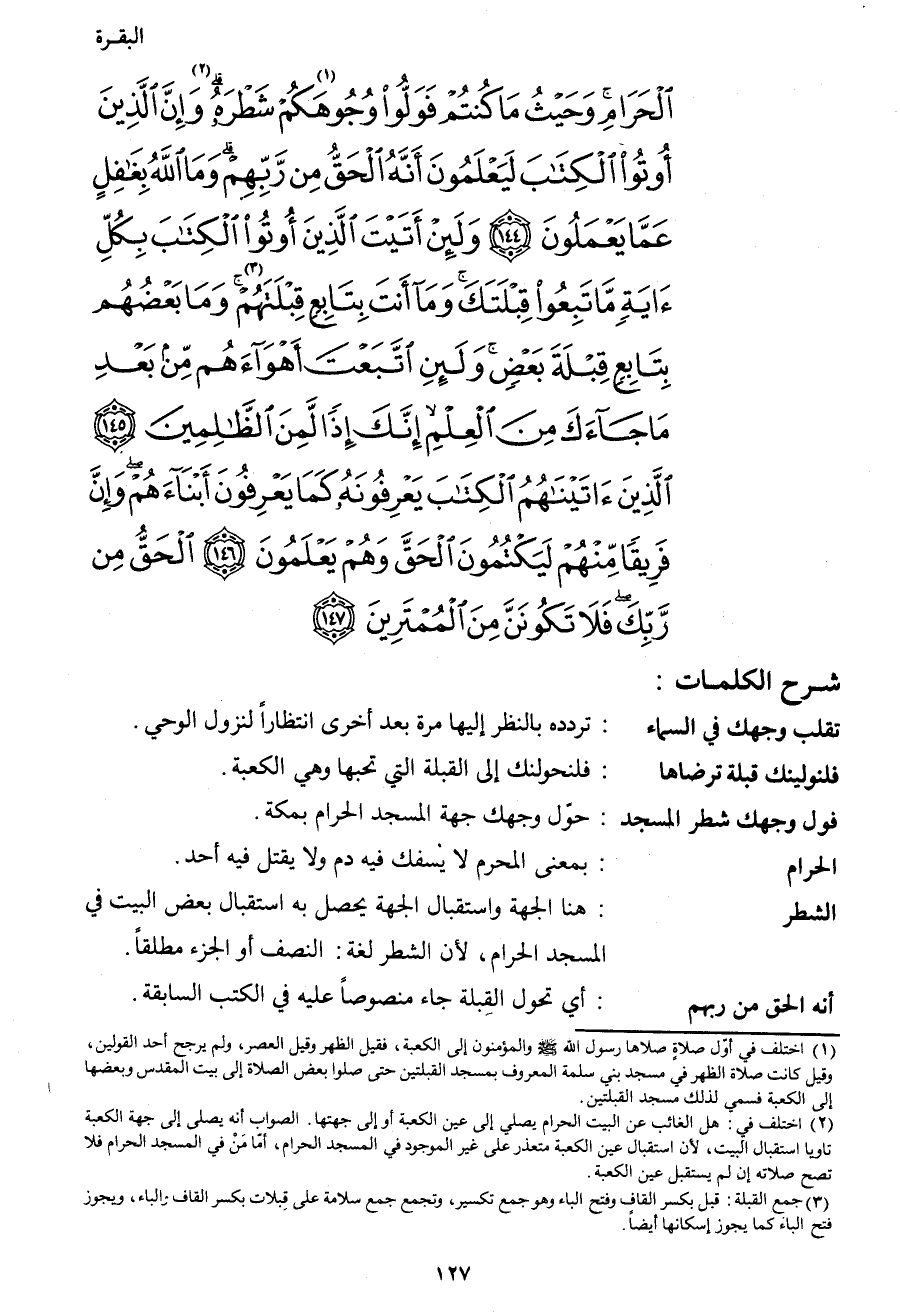 البقرة
ٱلْحَرَامِ ۚ وَحَيْثُ مَا كُنتُمْ فَوَلُّوا۟ (١) وُجُوهَكُمْ شَطْرَهُۥ ۗ (٢) وَإِنَّ ٱلَّذِينَ
أُوتُوا۟ ٱلْكِتَـٰبَ لَيَعْلَمُونَ أَنَّهُ ٱلْحَقُّ مِن رَّبِّهِمْ ۗ وَمَا ٱللَّهُ بِغَـٰفِلٍ
عَمَّا يَعْمَلُونَ ﴿١٤٤﴾ وَلَئِنْ أَتَيْتَ ٱلَّذِينَ أُوتُوا۟ ٱلْكِتَـٰبَ بِكُلِّ
ءَايَةٍ مَّا تَبِعُوا۟ قِبْلَتَكَ ۚ وَمَآ أَنتَ بِتَابِعٍ قِبْلَتَهُمْ ۚ (٣) وَمَا بَعْضُهُم
بِتَابِعٍ قِبْلَةَ بَعْضٍ ۚ وَلَئِنِ ٱتَّبَعْتَ أَهْوَآءَهُم مِّنۢ بَعْدِ
مَا جَآءَكَ مِنَ ٱلْعِلْمِ ۙ إِنَّكَ إِذًا لَّمِنَ ٱلظَّـٰلِمِينَ ﴿١٤٥﴾
ٱلَّذِينَ ءَاتَيْنَـٰهُمُ ٱلْكِتَـٰبَ يَعْرِفُونَهُۥ كَمَا يَعْرِفُونَ أَبْنَآءَهُمْ ۖ وَإِنَّ
فَرِيقًا مِّنْهُمْ لَيَكْتُمُونَ ٱلْحَقَّ وَهُمْ يَعْلَمُونَ ﴿١٤٦﴾ ٱلْحَقُّ مِن
رَّبِّكَ ۖ فَلَا تَكُونَنَّ مِنَ ٱلْمُمْتَرِينَ ﴿١٤٧﴾
شـرح الكلمـات :
تقلب وجهك في السماء : تردده بالنظر إليها مرة بعد أخرى انتظاراً لنزول الوحي .
فلنولينك قبلة ترضاها : فلنحولنك إلى القبلة التي تحبها وهي الكعبة .
فول وجهك شطر المسجد : حوّل وجهك جهة المسجد الحرام بمكة .
الحرام : بمعنى المحرم لا يُسفك فيه دم ولا يقتل فيه أحد .
الشطر : هنا الجهة واستقبال الجهة يحصل به استقبال بعض البيت في
المسجد الحرام ، لأن الشطر لغة : النصف أو الجزء مطلقاً .
أنه الحق من ربهم : أي تحول القِبلة جاء منصوصاً عليه في الكتب السابقة .
(١) اختلف في أوّل صلاةٍ صلاها رسول الله ﷺ والمؤمنون إلى الكعبة ، فقيل الظهر وقيل العصر ، ولم يرجح أحد القولين ،
وقيل كانت صلاة الظهر في مسجد بني سلمة المعروف بمسجد القبلتين حتى صلوا بعض الصلاة إلى بيت المقدس وبعضها
إلى الكعبة فسمي لذلك مسجد القبلتين .
(٢) اختلف في : هل الغائب عن البيت الحرام يصلي إلى عين الكعبة أو إلى جهتها . الصواب أنه يصلى إلى جهة الكعبة
تاويا استقبال البيت ، لأن استقبال عين الكعبة متعذر على غير الموجود في المسجد الحرام ، أمّا مَنْ في المسجد الحرام فلا
تصح صلاته إن لم يستقبل عين الكعبة .
(٣) جمع القبلة : قبل بكسر القاف وفتح الباء وهو جمع تكسير ، وتجمع جمع سلامة على قِبلات بكسر القاف والباء ، ويجوز
فتح الباء كما يجوز إسكانها أيضاً .
١٢٧